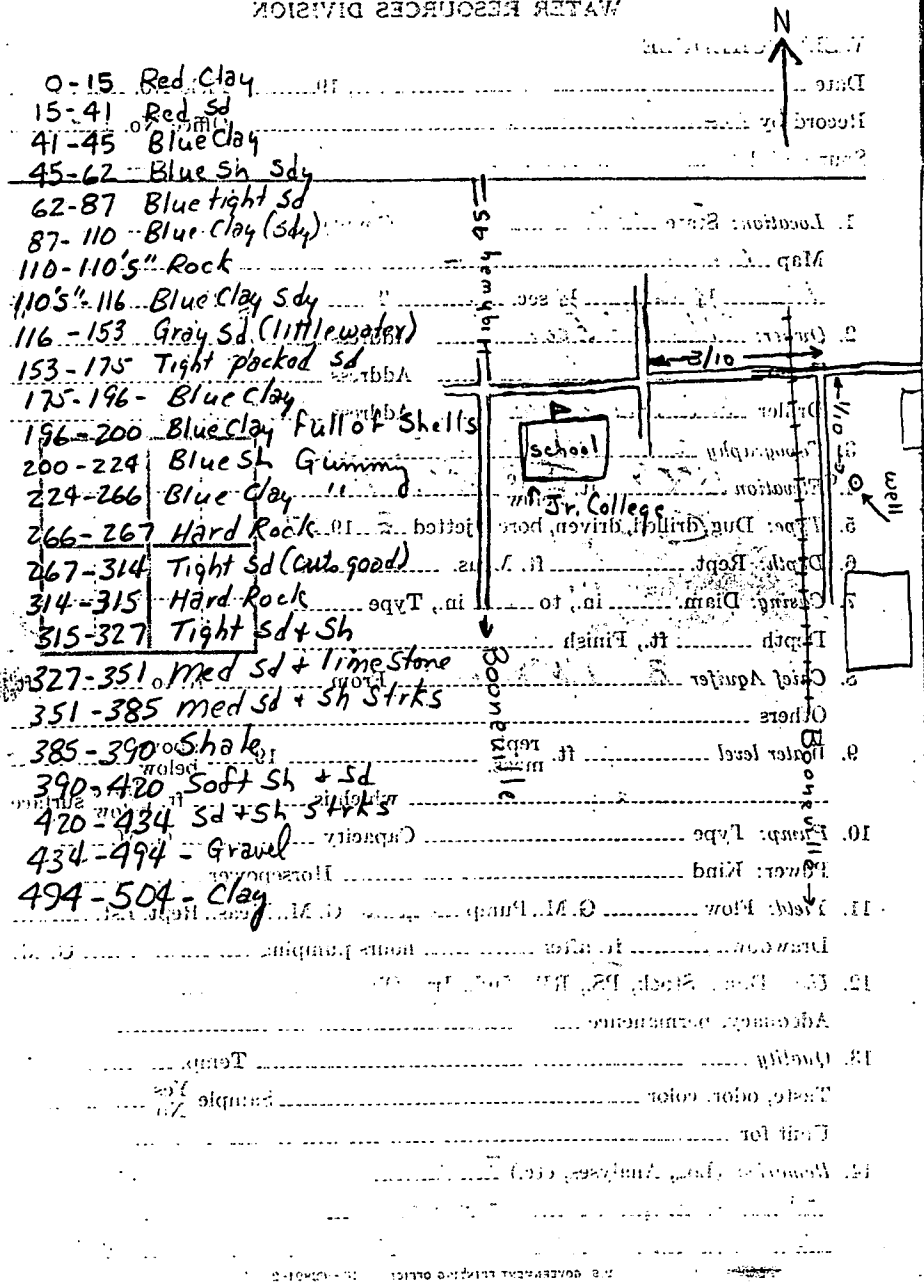 WATER RESOURCES DIVISION
N
0-15 Red Clay
15-41 Red Sd
41-45 Blue Clay
45-62 Blue Sh Sdy
62-87 Blue tight Sd
87-110 Blue Clay (Sdy)
110-110'5" Rock
110'5"-116 Blue Clay Sdy
116-153 Gray Sd (little water)
153-175 Tight packed Sd
175-196- Blue Clay
196-200 Blue Clay full of Shells
200-224 Blue Sh Gummy
224-266 Blue Clay "
266-267 Hard Rock
267-314 Tight Sd (Cut good)
314-315 Hard Rock
315-327 Tight Sd + Sh
327-351 Med Sd + lime Stone
351-385 med Sd + Sh Strks
385-390 Shale
390-420 Soft Sh + Sd
420-434 Sd + Sh Strks
434-494 - Gravel
494-504 - Clay
highway 45
Booneville
School
Jr. College
3/10
1/10
well
Booneville
Date
Record by
1. Location: State
Map
¼ ¼ sec.
2. Owner:
Address
Driller
Address
Topography
Elevation
5. Type: Dug, drilled, driven, bored, jetted 19
6. Depth: Rept. ft.
7. Casing: Diam. in., to in., Type
Depth ft., Finish
8. Chief Aquifer From
Others
9. Water level ft. rept. meas. 19 above below
which is ft. below surface
10. Pump: Type Capacity
Power: Kind Horsepower
11. Yield: Flow G.M., Pump G.M., Meas., Rept. Est.
Drawdown ft. after hours pumping
12. Use: Dom., Stock, PS., RR., Ind., Irr.
Adequacy, permanence
13. Quality Temp.
Taste, odor, color Sample Yes No
Unfit for
14. Remarks: (Log, Analyses, etc.)
U.S. GOVERNMENT PRINTING OFFICE